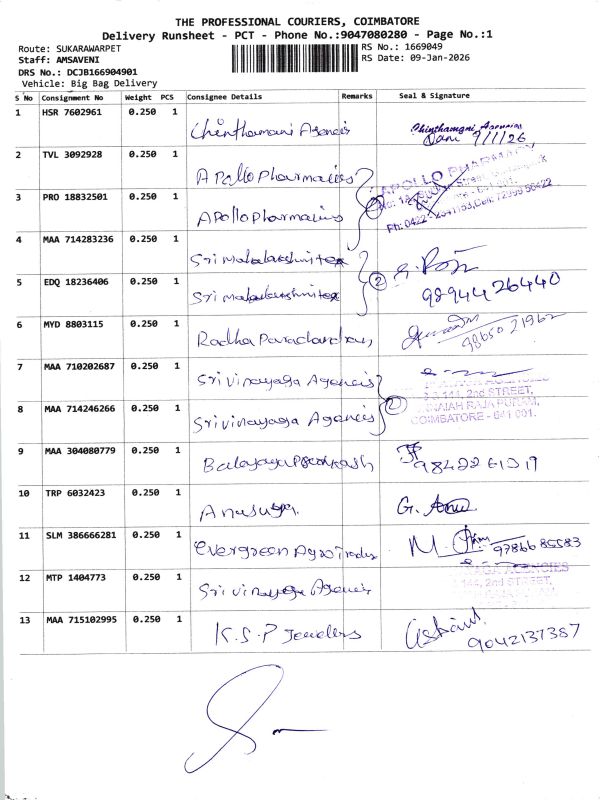 THE PROFESSIONAL COURIERS, COIMBATORE
Delivery Runsheet - PCT - Phone No.:9047080280 - Page No.:1
Route: SUKARAWARPET
RS No.: 1669049
Staff: AMSAVENI
RS Date: 09-Jan-2026
DRS No.: DCJB166904901
Vehicle: Big Bag Delivery
S No Consignment No Weight PCS Consignee Details Remarks Seal & Signature
1 HSR 7602961 0.250 1 Chinthamani Agencis Chinthamani Agencies
9/1/26
2 TVL 3092928 0.250 1 Apollo Pharmacies APOLLO PHARMACY
3 PRO 18832501 0.250 1 Apollo Pharmacies 2
4 MAA 714283236 0.250 1 Sri mahalakshmi tex
5 EDQ 18236406 0.250 1 Sri mahalakshmi tex 2 98944 26440
6 MYD 8803115 0.250 1 Radha 98650 21962
7 MAA 710202687 0.250 1 Sri vinayaga Agencis
2nd STREET,
8 MAA 714246266 0.250 1 Sri vinayaga Agencis 2 RAJA PURAM,
COIMBATORE - 641 001.
9 MAA 304080779 0.250 1
10 TRP 6032423 0.250 1 G. Anu
11 SLM 386666281 0.250 1 Evergreen Agro Trades M. 97866 85583
12 MTP 1404773 0.250 1 Sri vinayaga Agencis AGENCIES
144, 2nd STREET,
13 MAA 715102995 0.250 1 K.S.P Jewellers 9042137387